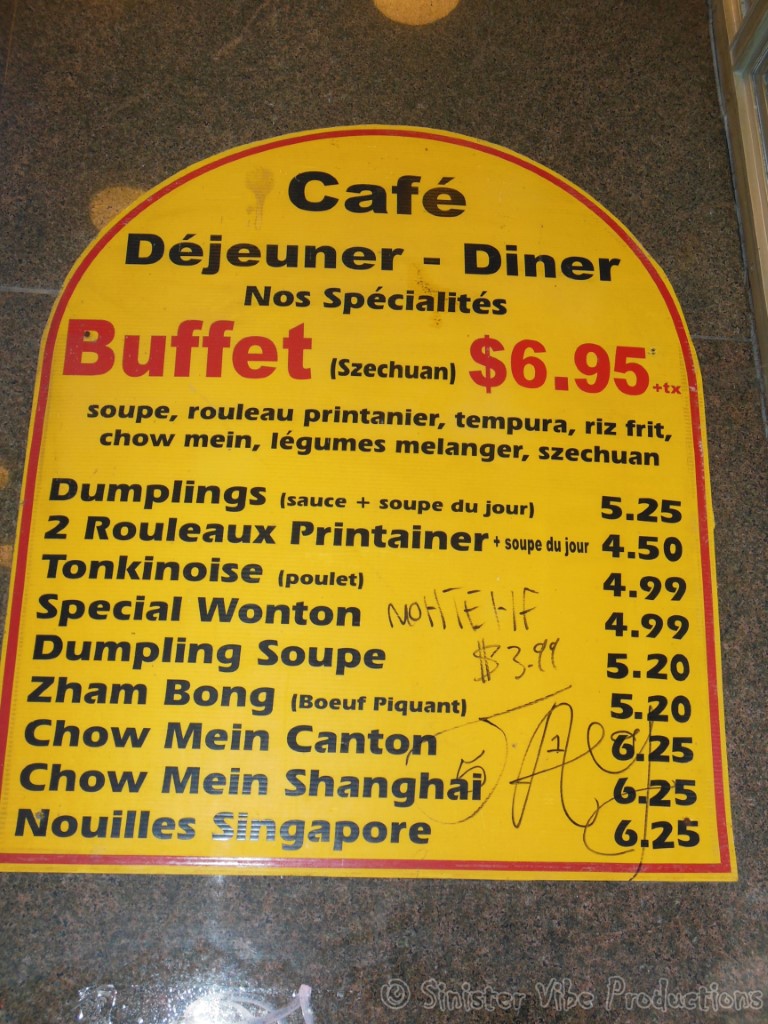 Café
Déjeuner - Diner
Nos Spécialités
Buffet (Szechuan) $6.95 +tx
soupe, rouleau printanier, tempura, riz frit,
chow mein, légumes melanger, szechuan
Dumplings (sauce + soupe du jour) 5.25
2 Rouleaux Printainer + soupe du jour 4.50
Tonkinoise (poulet) 4.99
Special Wonton 4.99
Dumpling Soupe $3.99 5.20
Zham Bong (Boeuf Piquant) 5.20
Chow Mein Canton 6.25
Chow Mein Shanghai 6.25
Nouilles Singapore 6.25
© Sinister Vibe Productions